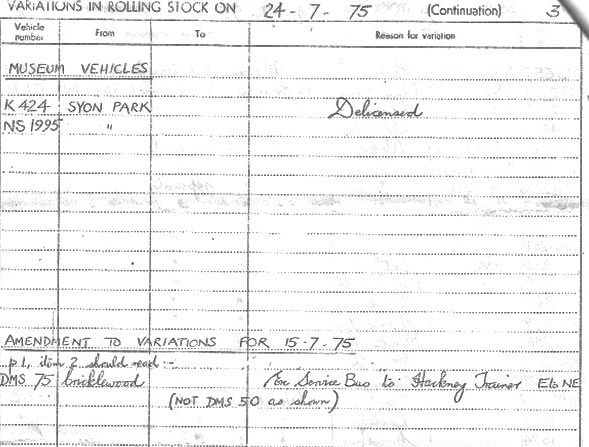 VARIATIONS IN ROLLING STOCK ON 24 - 7 - 75 (Continuation) 3
Vehicle number From To Reason for variation
MUSEUM VEHICLES
K 424 SYON PARK Delicensed
NS 1995 "
AMENDMENT TO VARIATIONS FOR 15-7-75
p 1, item 2 should read :-
DMS 75 Cricklewood Ex Service Bus to Hackney Trainer E to NE
(NOT DMS 50 as shown)